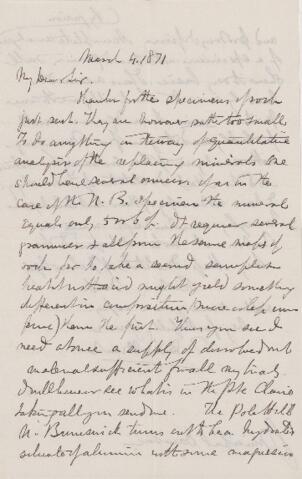 March 4. 1871
My dear Sir.
Thanks for the specimens of rock
just rec'd. They are however rather too small
To do anything in the way of quantitative
analysis of the replacing minerals one
should have several ounces if as in the
case of the N. B. specimen the mineral
equals only 5 or 6 p. It requires several
grammes & all from the same mass of
rock for to take a second sample
might yield something
different in composition (more or less
pure) than the first. Thus you see I
need at once a supply of dissolved out
material sufficient for all my trials
I will however see what is in the Ste Claire
taking all you send me. The Pole Hill
N. Brunswick turns out to be a hydrated
silicate of alumina with some magnesian